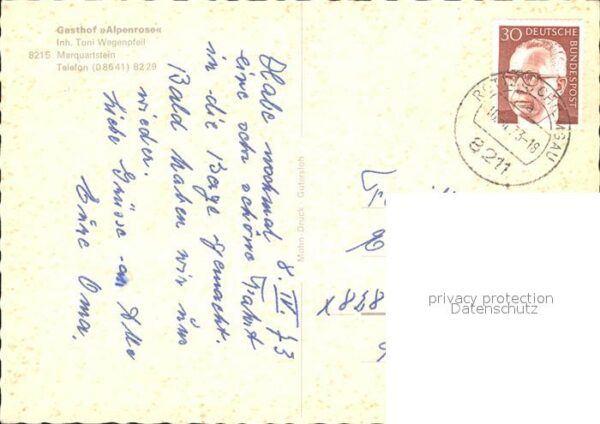 Gasthof »Alpenrose«
Inh. Toni Wagenpfeil
8215 Marquartstein
Telefon (0 86 41) 82 29
8. IV 73
Habe nochmal
eine sehr schöne Fahrt
in die Berge gemacht.
Bald haben wir uns
wieder.
Liebe Grüsse an Alle
Eure Oma.
Mohn-Druck Gütersloh
30 DEUTSCHE BUNDESPOST
73-18
8211
x 828
privacy protection
Datenschutz